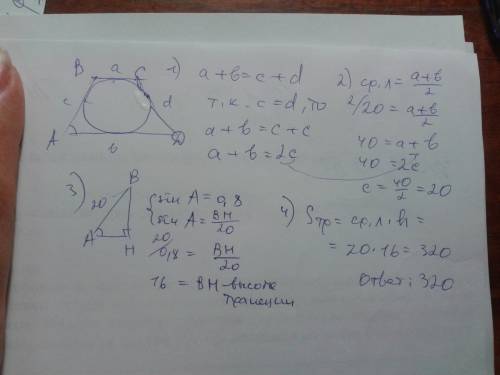 B a C
c d
A b D
1) a+b=c+d
т.к. c=d, то
a+b=c+c
a+b=2c
2) ср.л=\frac{a+b}{2}
2/20=\frac{a+b}{2}
40=a+b
40=2c
c=\frac{40}{2}=20
3) B
20
A H
{sin A=0,8
sin A=\frac{BH}{20}
20/0,8=\frac{BH}{20}
16=BH-высота
трапеции
4) Sтр=ср.л·h=
=20·16=320
Ответ: 320